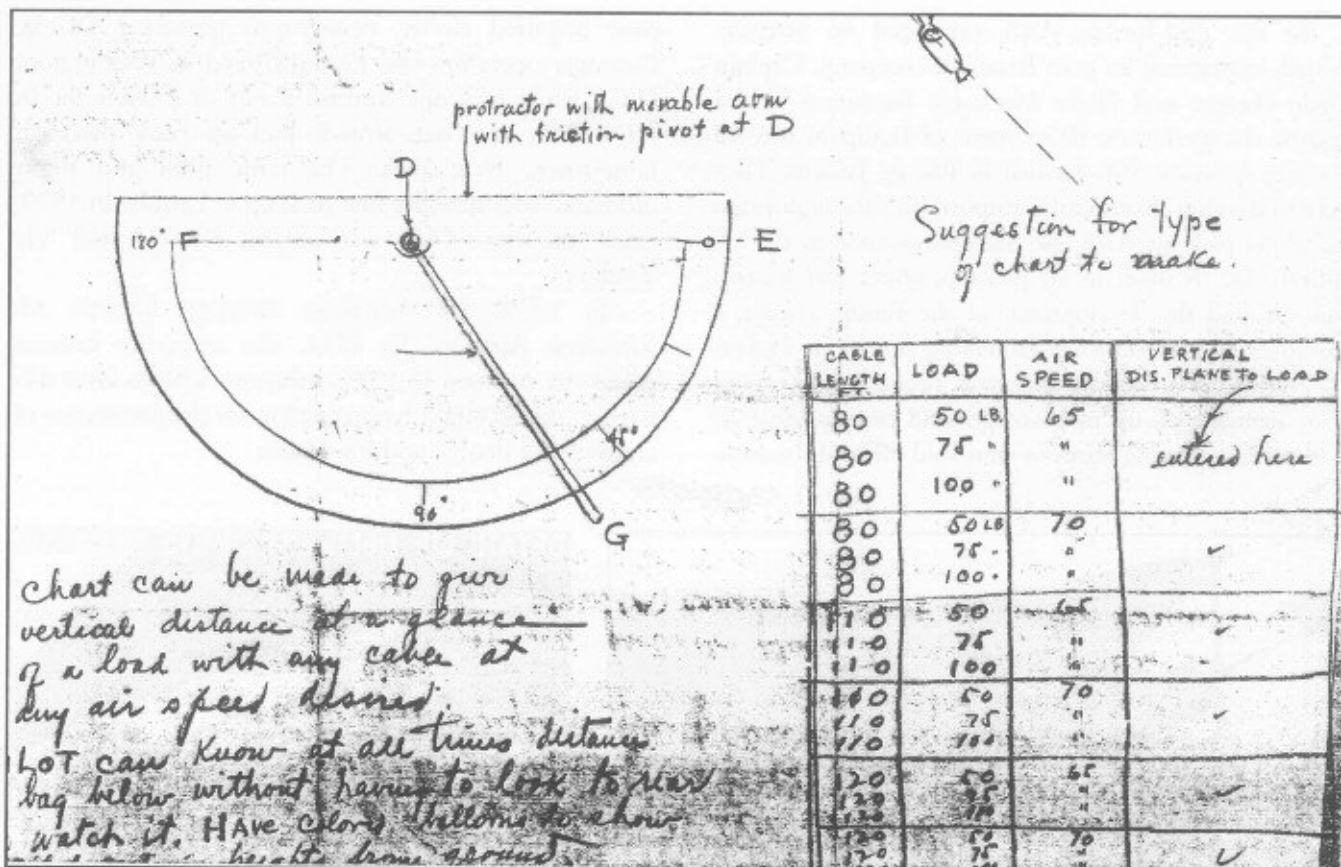 protractor with movable arm
with friction pivot at D
D
180° F
E
45°
90°
G
Suggestion for Type
of chart to make.
CABLE LENGTH FT. LOAD AIR SPEED VERTICAL DIS. PLANE TO LOAD
80 50 LB 65
80 75 " " entered here
80 100 " "
80 50 LB 70
80 75 " " ✓
80 100 " "
110 50 65
110 75 " ✓
110 100 "
110 50 70
110 75 " ✓
110 100 "
120 50 65
120 75 " ✓
120 100 "
120 50 70
120 75 " ✓
chart can be made to give
vertical distance at a glance
of a load with any cable at
any air speed desired.
LOT can know at all times distance
bag below without having to look to rear
watch it. HAVE colored to show
heights from ground